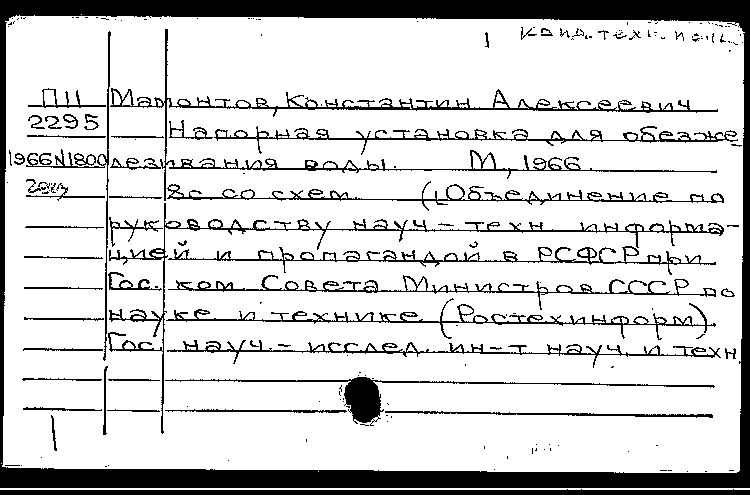 канд. техн. наук
П11 Мамонтов, Константин Алексеевич
2295 Напорная установка для обезже-
1966N1800 лезивания воды. М, 1966.
2экз 8с со схем. (Объединение по
руководству науч.- техн. информа-
цией и пропагандой в РСФСР при
Гос. ком. Совета Министров СССР по
науке и технике (Ростехинформ).
Гос. науч.- исслед. ин-т науч. и техн.